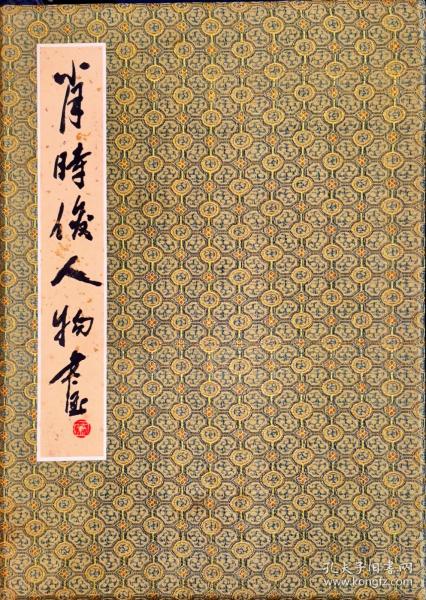 肖時俊人物畫
孔夫子旧书网
www.kongfz.com